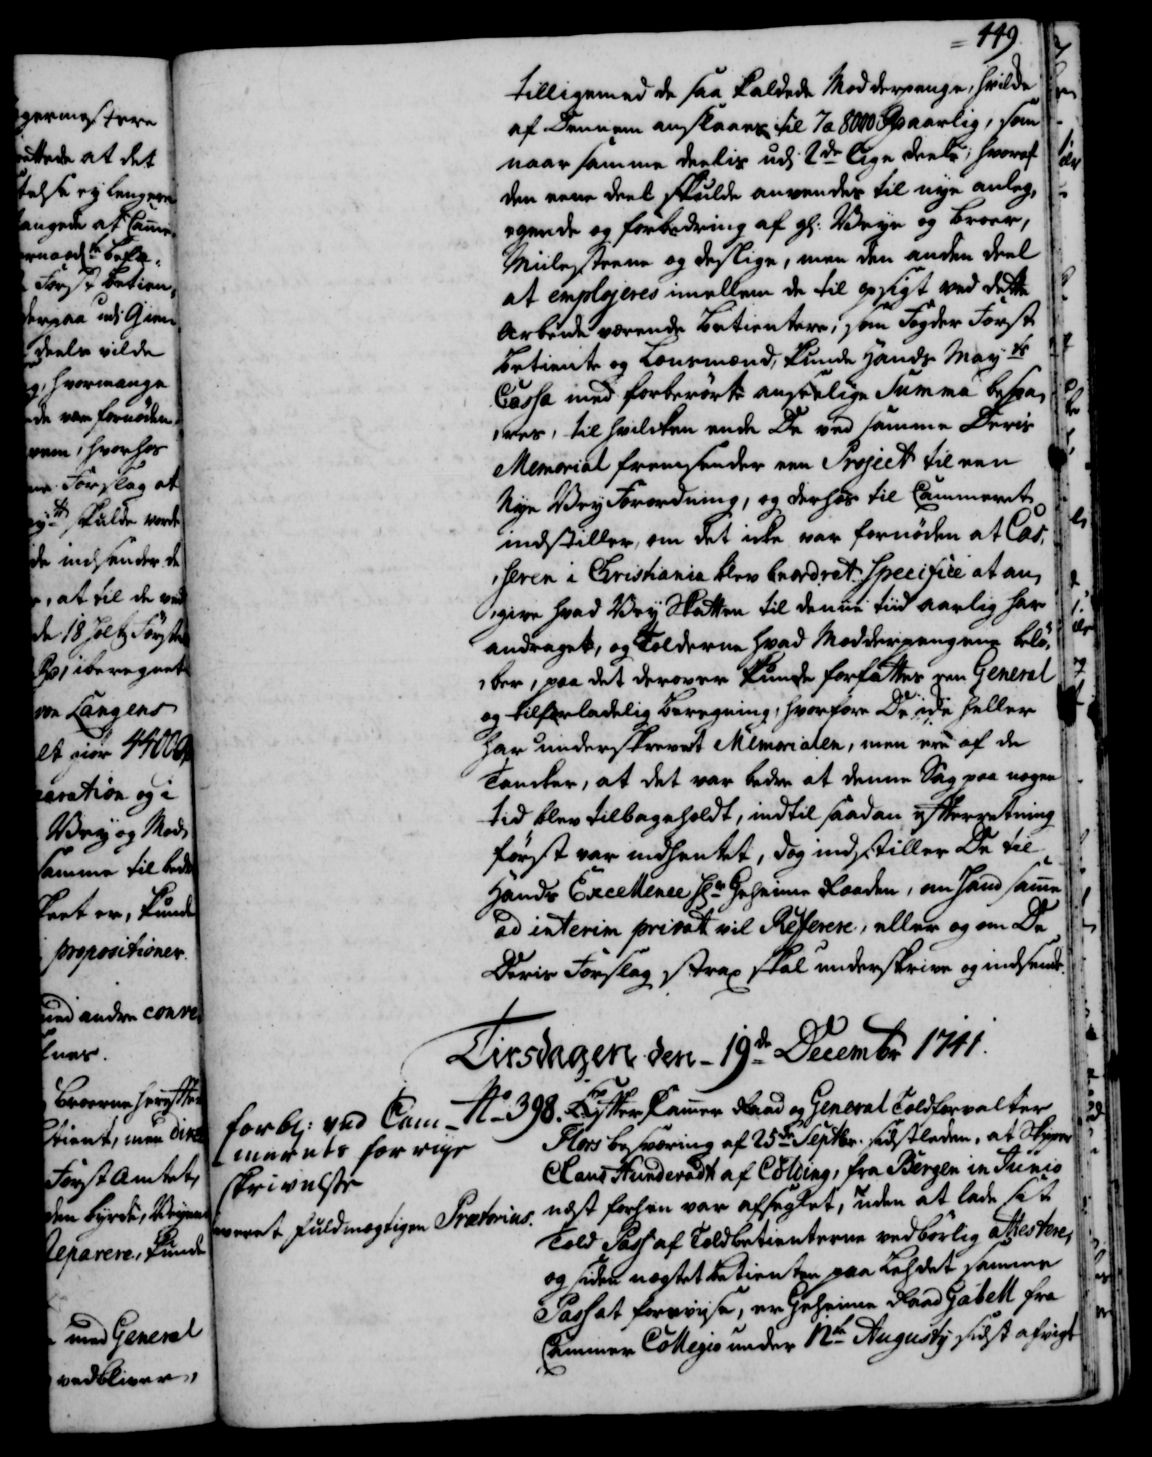 = 449
tilligemed de saa kaldede Modderpenge, hvilcke
af Dennem anslaaes til 7 a 8000 Rd aarlig, som
naar samme deelis udj 2de lige deele, hvoraf
den eene deel skulde anvendes til nye anleg,
egende og forbedring af gl: Veye og broer,
Miilesteene og deslige, men den anden deel
at employeres imellem de til opsigt ved dette
Arbeide værende betientere, som Fogder Forst
betiente og Lensmænd, kunde Hands May.ts
Cassa med forberørte anseelige Summa bespa,
,res, til hvilcken ende De ved samme Deris
Memorial fremsender een Project til een
Nye Vey Forordning, og derhos til Cammeret
indstiller, om det icke var fornøden at Cas,
,seren i Christiania blev beordret Specifice at an,
,give hvad Vey Skatten til denne tiid aarlig har
andraget, og Tolderne hvad Modderpengene belø,
,ber, paa det derover kunde forfattes een General
og tilforladelig beregning, hvorfore De icke heller
har underskrevet Memorialen, men ere af de
Tancker, at det var bedre at denne Sag paa nogen
tid blev tilbageholdt, indtil saadan efterretning
først var indhentet, dog indstiller De til
Hands Excellence Hr. Geheime Raaden, om Hand samme
ad interim privat vil Referere, eller og om De
Deris Forslag strax skal underskrive og indsende.
Tirsdagen den 19de Decembr 1741.
forbl: ved Cam-
merets forrige
skrivelse
leveret fuldmægtigen Prætorius.
No 398. Efter Cammer Raad og General Toldforvalter
Flors besværing af 25de Septbr. sidstleden, at Skipper
Claus Hunderadt af Colding, fra Bergen in Junio
næst forhen var afseglet, uden at lade sit
Told Pass af Toldbetienterne vedbørlig attestere,
og siden nægtet betienten paa Lehdet samme
Pass at foreviise, er Geheime Raad Gabell fra
Cammer Collegio under 12te Augusty sidst afvigt